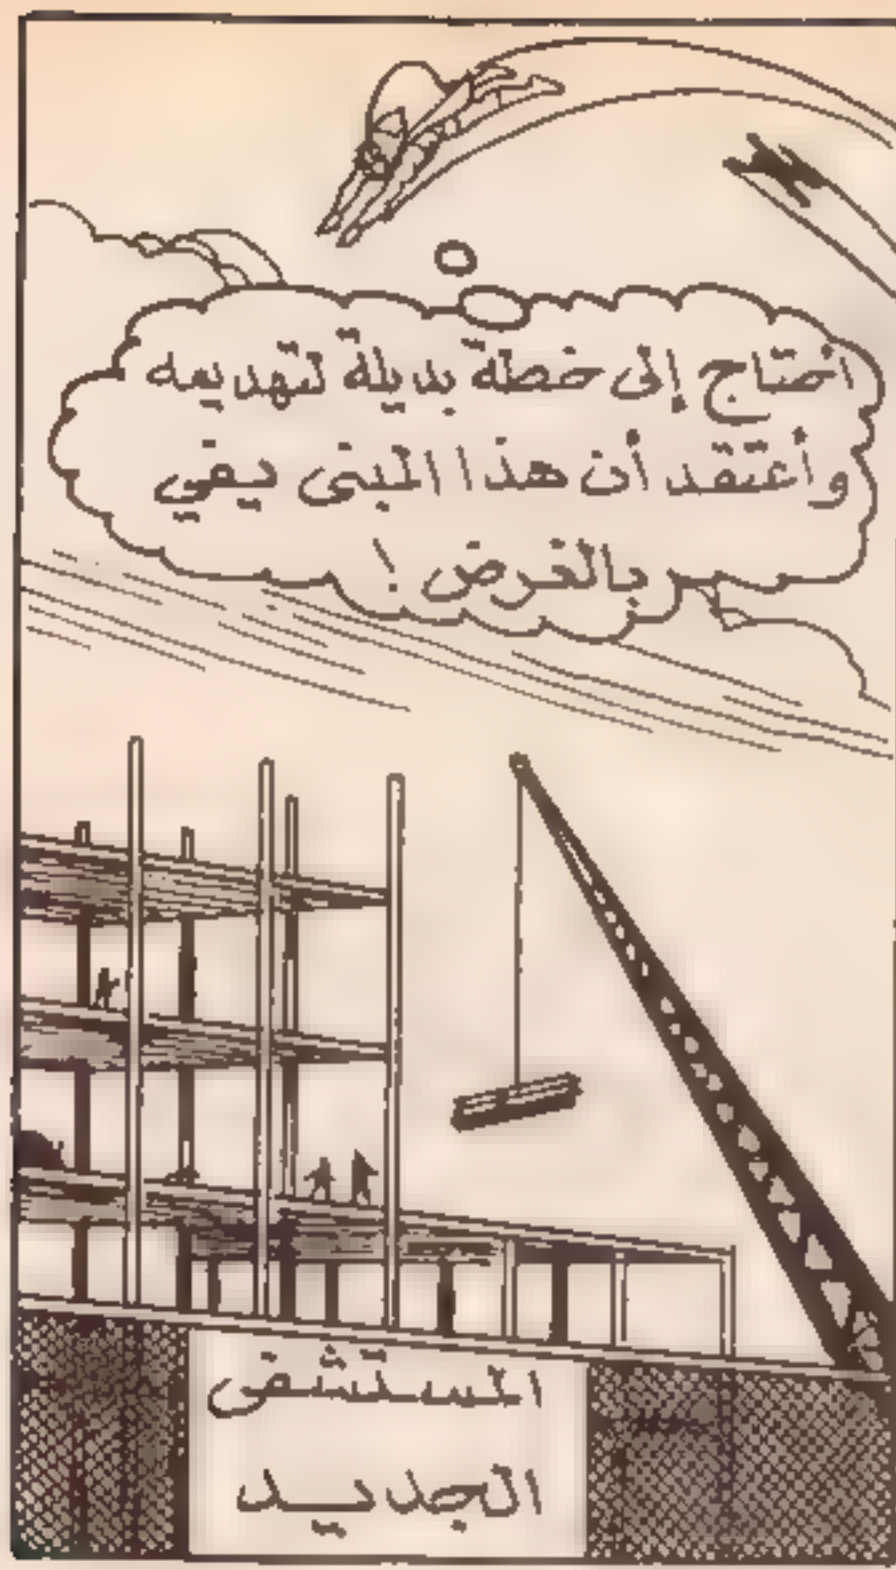 احتاج إلى خطة بديلة لتهديمه
وأعتقد أن هذا المبنى يفي
بالغرض !
المستشفى
الجديد